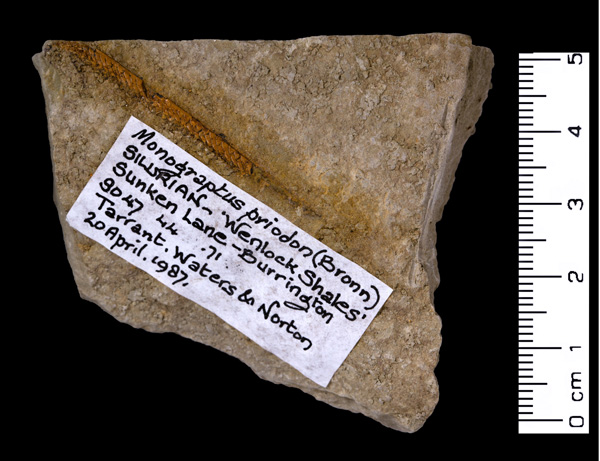 Monograptus priodon (Bronn)
SILURIAN - Wenlock Shales'
Sunken Lane - Burrington
9047 44 .71.
Tarrant, Waters & Norton
20 April. 1987.
5
4
3
2
1
0 cm